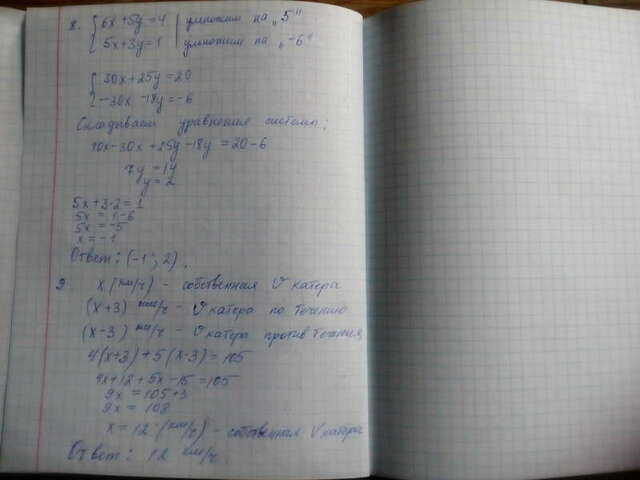 8. { 6x + 5y = 4 | умножим на „5“
5x + 3y = 1 | умножим на „-6“
{ 30x + 25y = 20
-30x - 18y = -6
Складываем уравнения системы:
30x - 30x + 25y - 18y = 20 - 6
7y = 14
y = 2
5x + 3·2 = 1
5x = 1 - 6
5x = -5
x = -1
Ответ: (-1; 2).
9. x (км/ч) - собственная V катера
(x+3) км/ч - V катера по течению
(x-3) км/ч - V катера против течения
4(x+3) + 5(x-3) = 105
4x + 12 + 5x - 15 = 105
9x = 105 + 3
9x = 108
x = 12 (км/ч) - собственная V катера
Ответ: 12 км/ч